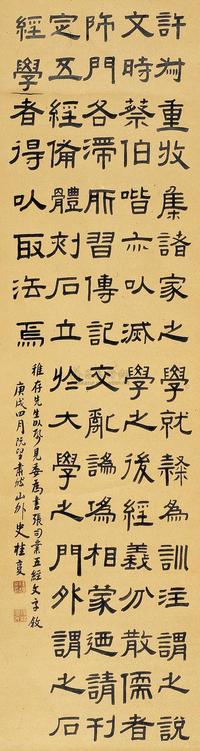 許尗重收集諸家之學就隸為訓注謂之說
文時蔡伯喈亦以滅學之後經義分散儒者
師門各滯所習傳記交亂譌偽相蒙迺請刊
定五經備體刻石立於大學之門外謂之石
經學者得以取法焉
稚存先生以見委為書張司業五經文字敘
庚戌四月既望肅然山外史桂馥